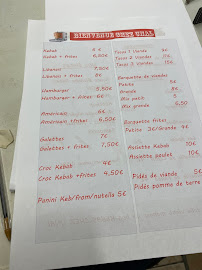 BIENVENUE CHEZ UNAL
Kebab 6 €
Kebab + frites 6,50€
Libanais 7,50€
Libanais + frites 8€
Hamburger 5,50€
Hamburger + frites 6€
Américain 6€
Américain + frites 6,50€
Galettes 7€
Galettes + frites 7,50€
Croc Kebab 4€
Croc Kebab + frites 4,50€
Panini Keb/from/nutella 5€
Tacos 1 Viande
Tacos 2 Viandes
Tacos 3 Viandes
Barquette de viandes
Petite
Grande
Mix petit 5
Mix grande 6,50
Barquette frites
Petite 3€/Grande
Assiette Kebab
Assiette poulet
Pidés de viande 5€
Pidés pomme de terre